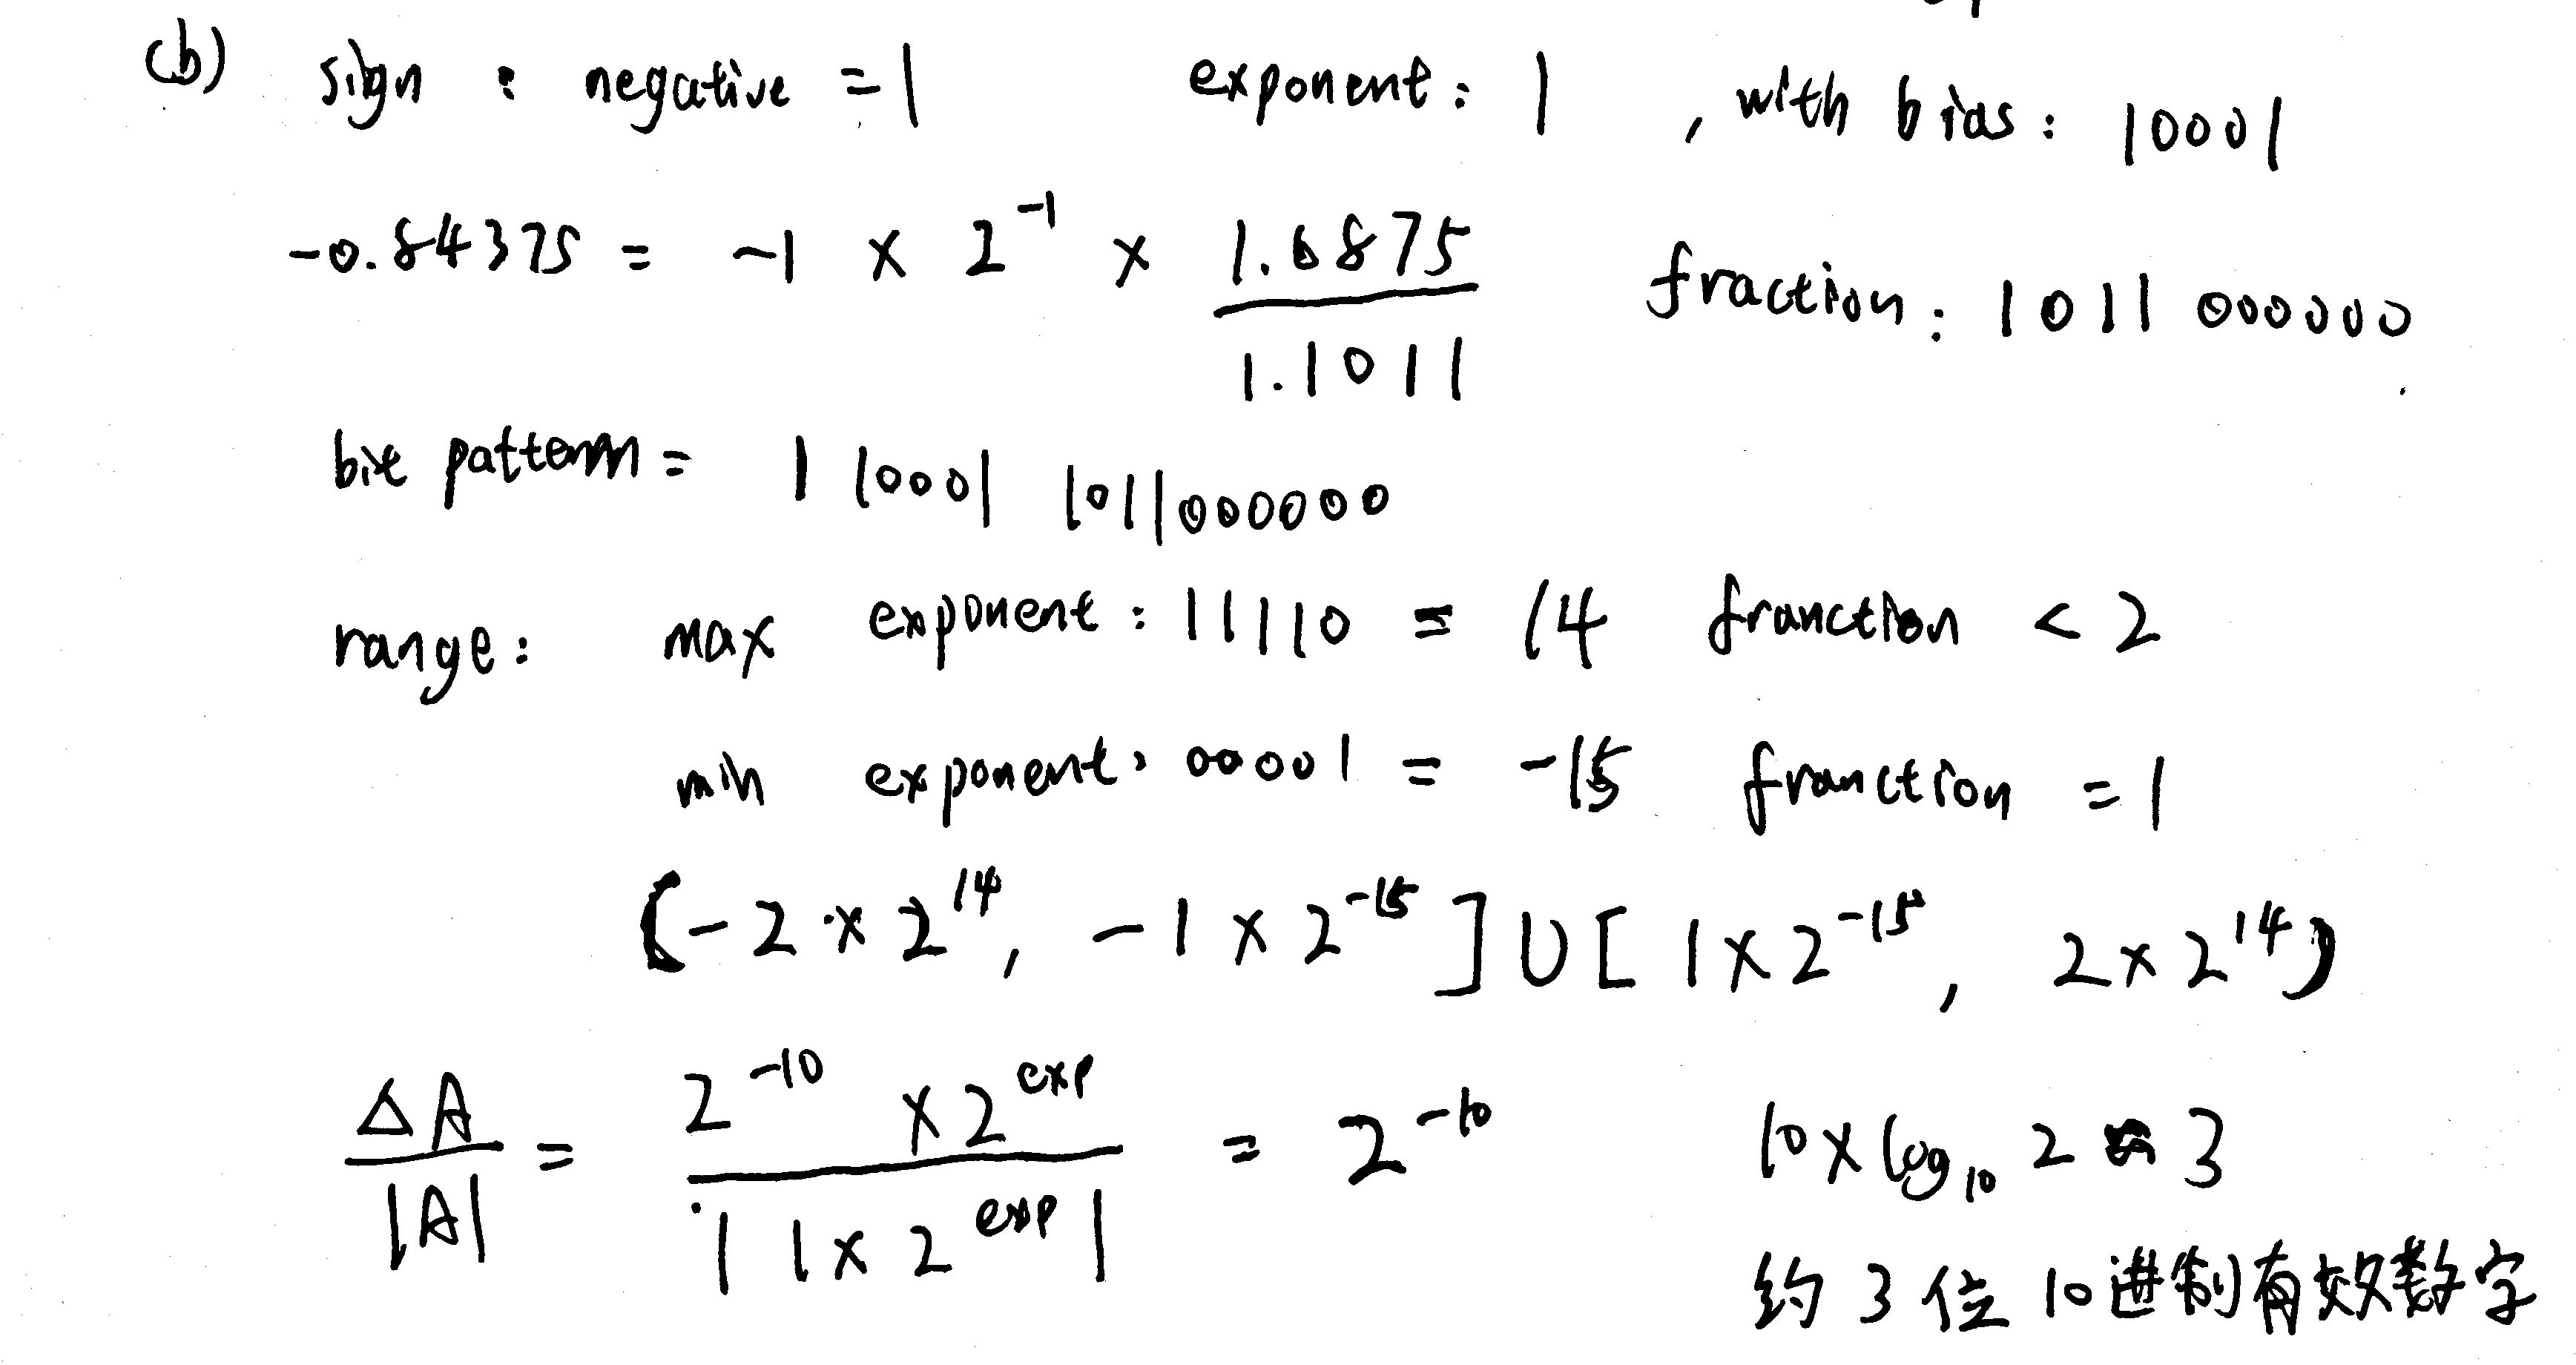 (b) sign : negative = 1 exponent : 1 , with bias : 10001
-0.84375 = -1 × 2^-1 × 1.6875 fraction : 1011 000000
1.1011
bit pattern = 1 10001 1011000000
range : max exponent : 11110 = 14 franction < 2
min exponent : 00001 = -15 franction = 1
(-2 × 2^14, -1 × 2^-15] U [1 × 2^-15, 2 × 2^14)
ΔA / |A| = 2^-10 × 2^exp / |1 × 2^exp| = 2^-10 10 × log₁₀ 2 ≈ 3
约 3 位 10 进制有效数字